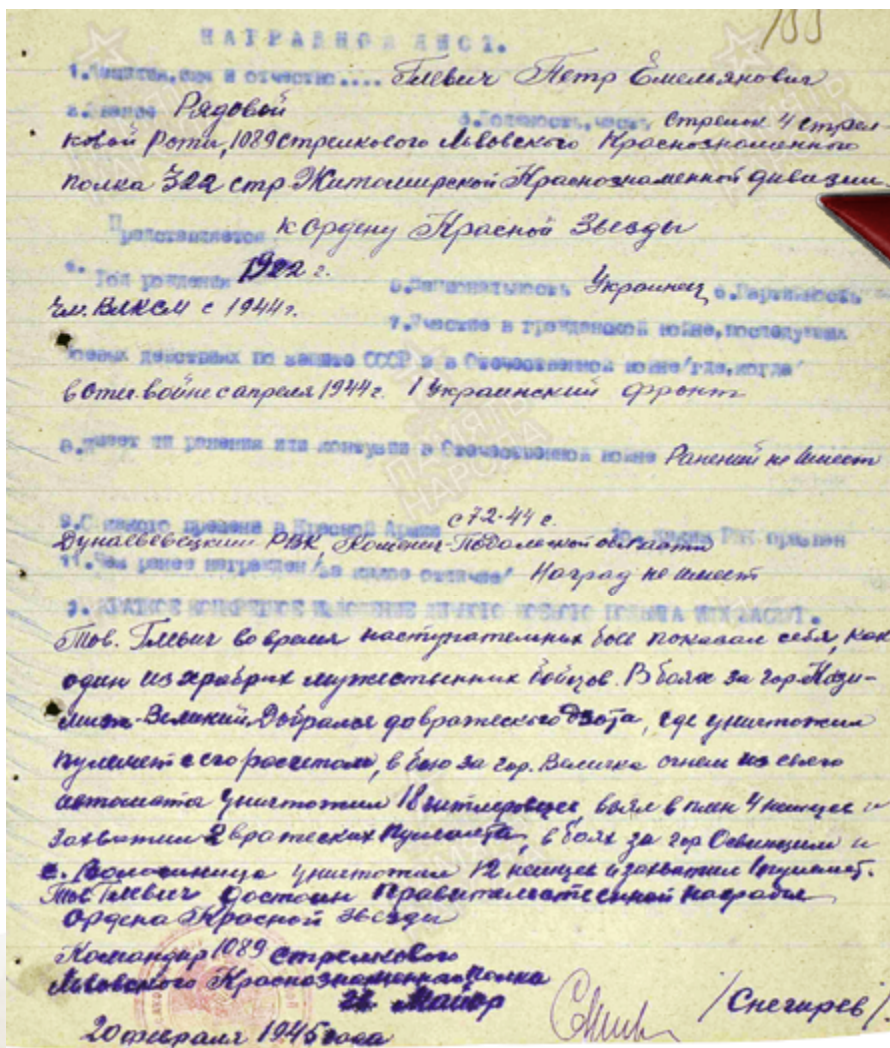 133
НАГРАДНОЙ ЛИСТ.
1. Фамилия, имя и отчество.... Глевич Петр Емельянович
2. Звание Рядовой 3. Должность, часть Стрелок 4 стрел-
ковой Роты, 1089 стрелкового Львовского Краснознаменного
полка 322 стр Житомирской Краснознаменной дивизии.
Представляется к ордену Красной Звезды
4. Год рождения 1922 г. 5. Национальность Украинец 6. Партийность
Чл. ВЛКСМ с 1944 г. 7. Участие в гражданской войне, последующих
боевых действиях по защите СССР и в Отечественной войне /где, когда/
в Отеч. войне с апреля 1944 г. 1 Украинский фронт
8. Имеет ли ранения или контузии в Отечественной войне Ранений не имеет
9. С какого времени в Красной Армии с 7-2-44 г. 10. Каким РВК призван
Дунаевецким РВК, Каменец-Подольской области
11. Чем ранее награжден /за какие отличия/ Наград не имеет
КРАТКОЕ КОНКРЕТНОЕ ИЗЛОЖЕНИЕ ЛИЧНОГО БОЕВОГО ПОДВИГА ИЛИ ЗАСЛУГ.
Тов. Глевич во время наступательных боев показал себя, как
один из храбрых мужественных бойцов. В боях за гор.
Великий, Добрался до вражеского Дзота, где уничтожил
пулемет с его расчетом, в бою за гор. Величка огнем из своего
автомата уничтожил 18 гитлеровцев, взял в плен 4 немцев и
Захватил 2 вражеских пулемета, в боях за гор Освенцим и
с. уничтожил 12 немцев и захватил 1 пулемет.
Тов Глевич достоин Правительственной награды
Ордена Красной Звезды
Командир 1089 Стрелкового
Львовского Краснознаменного Полка
Майор /Снегирев/
20 февраля 1945 года
ПАМЯТЬ НАРОДА